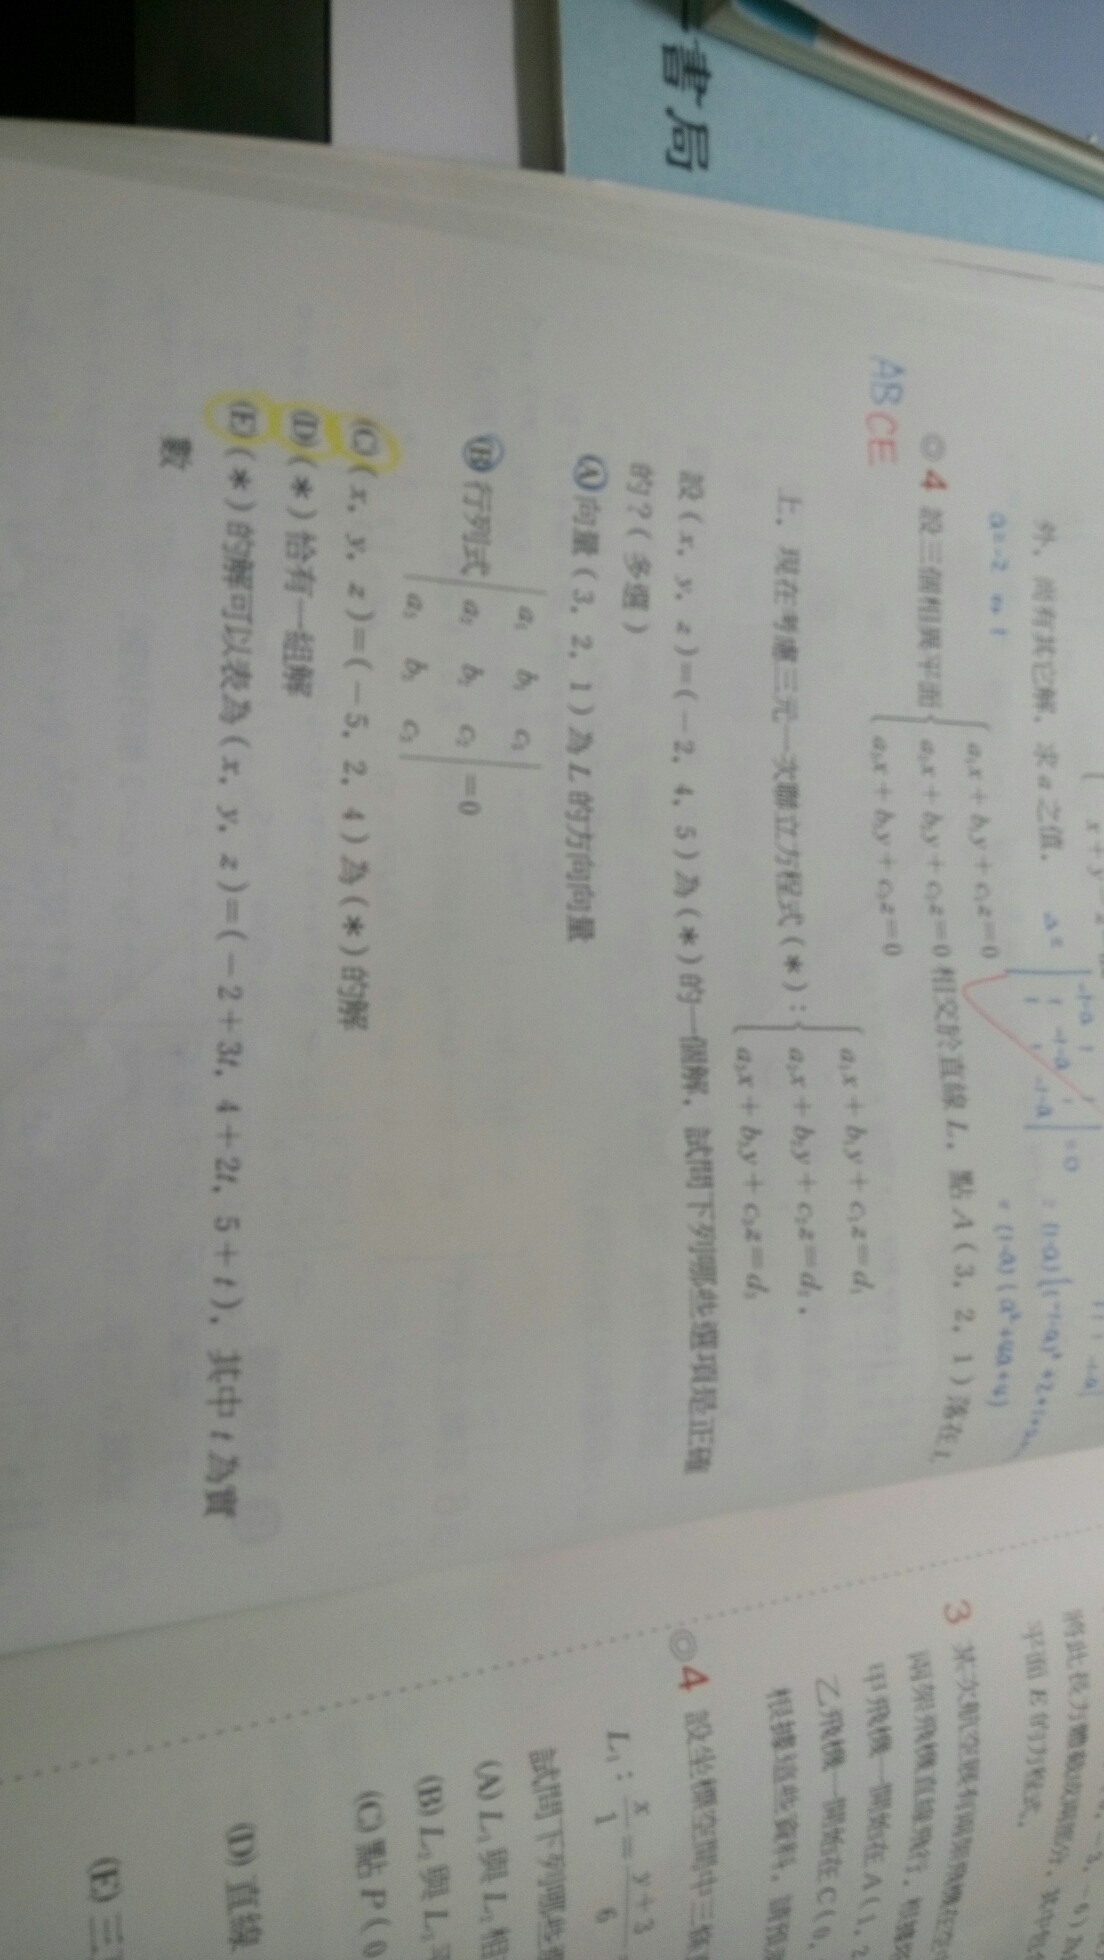 書局
外，尚有其它解，求a之值．
a=-2 or 1
ABCE
◎4 設三個相異平面
a₁x＋b₁y＋c₁z＝0
a₂x＋b₂y＋c₂z＝0 相交於直線L，點A（3，2，1）落在L
a₃x＋b₃y＋c₃z＝0
上，現在考慮三元一次聯立方程式（＊）：
a₁x＋b₁y＋c₁z＝d₁
a₂x＋b₂y＋c₂z＝d₂，
a₃x＋b₃y＋c₃z＝d₃
設（x，y，z）＝（－2，4，5）為（＊）的一個解，試問下列哪些選項是正確
的？（多選）
(A)向量（3，2，1）為L的方向向量
(B)行列式
a₁ b₁ c₁
a₂ b₂ c₂ ＝0
a₃ b₃ c₃
(C)（x，y，z）＝（－5，2，4）為（＊）的解
(D)（＊）恰有一組解
(E)（＊）的解可以表為（x，y，z）＝（－2＋3t，4＋2t，5＋t），其中t為實
數
平面E的方程式．
3 某次航空展有兩架飛機在空
兩架飛機直線飛行，
甲飛機一開始在A（1，2
乙飛機一開始在C（0，
根據這些資料，請
◎4 設坐標空間中三條
L₁：x/1＝y＋3/6
試問下列哪些
(A)L₁與L₂相
(B)L₂與L₃
(C)點P（0
(D)直線
(E)三